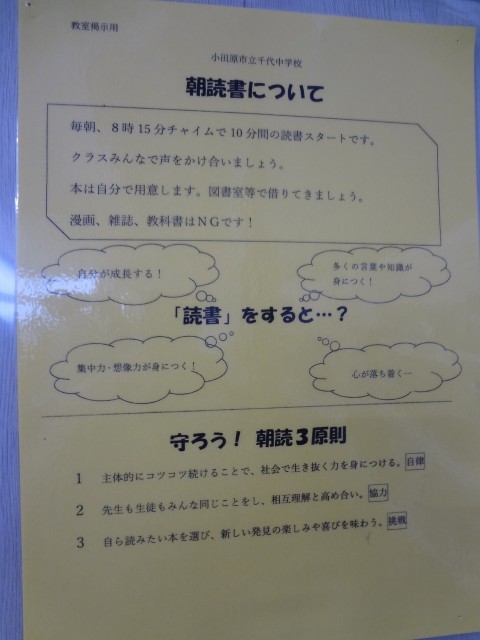 教室掲示用
小田原市立千代中学校
朝読書について
毎朝、8時15分チャイムで10分間の読書スタートです。
クラスみんなで声をかけ合いましょう。
本は自分で用意します。図書室等で借りてきましょう。
漫画、雑誌、教科書はNGです！
自分が成長する！
多くの言葉や知識が
身につく！
「読書」をすると…？
集中力・想像力が身につく！
心が落ち着く―
守ろう！ 朝読3原則
1 主体的にコツコツ続けることで、社会で生き抜く力を身につける。自律
2 先生も生徒もみんな同じことをし、相互理解と高め合い。協力
3 自ら読みたい本を選び、新しい発見の楽しみや喜びを味わう。挑戦